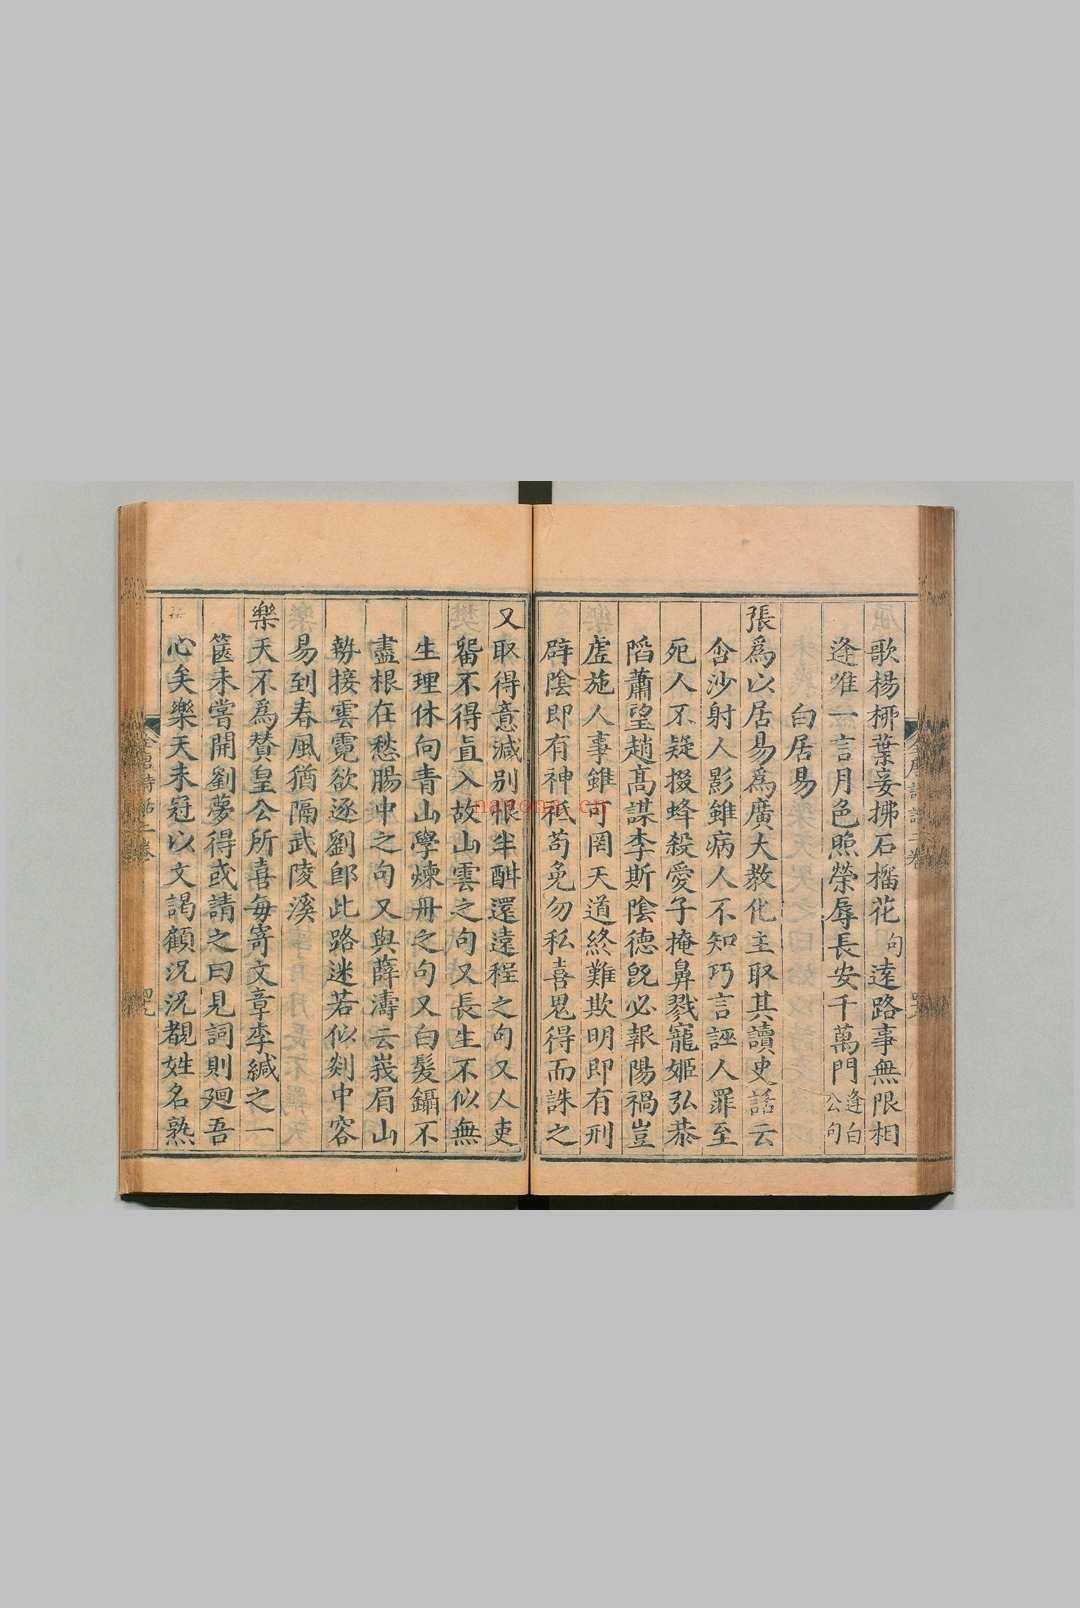 歌楊栁葉妾拂石榴花句遠路事無限相
逢唯一言月色照榮辱長安千萬門逢白公句
白居易
張爲以居易爲廣大教化主取其讀史詩云
含沙射人影雖病人不知巧言誣人罪至
死人不疑掇蜂殺愛子掩鼻戮寵姬弘恭
䧟蕭望趙髙謀李斯陰德既必報陽禍豈
虗施人事雖可罔天道終難欺明即有刑
辟陰即有神祗苟免勿私喜鬼得而誅之
又取得意減别恨半酣還遠程之句又人吏
留不得直入故山雲之句又長生不似無
生理休向青山學煉丹之句又白髮鑷不
盡根在愁腸中之句又與薛濤云峩眉山
勢接雲霓欲逐劉郎此路迷若似剡中容
易到春風猶隔武陵溪
樂天不爲贊皇公所喜每寄文章李緘之一
篋未嘗開劉夢得或請之曰見詞則廻吾
心矣樂天未冠以文謁顧况况覩姓名熟
全唐詩話二卷
nayona.cn